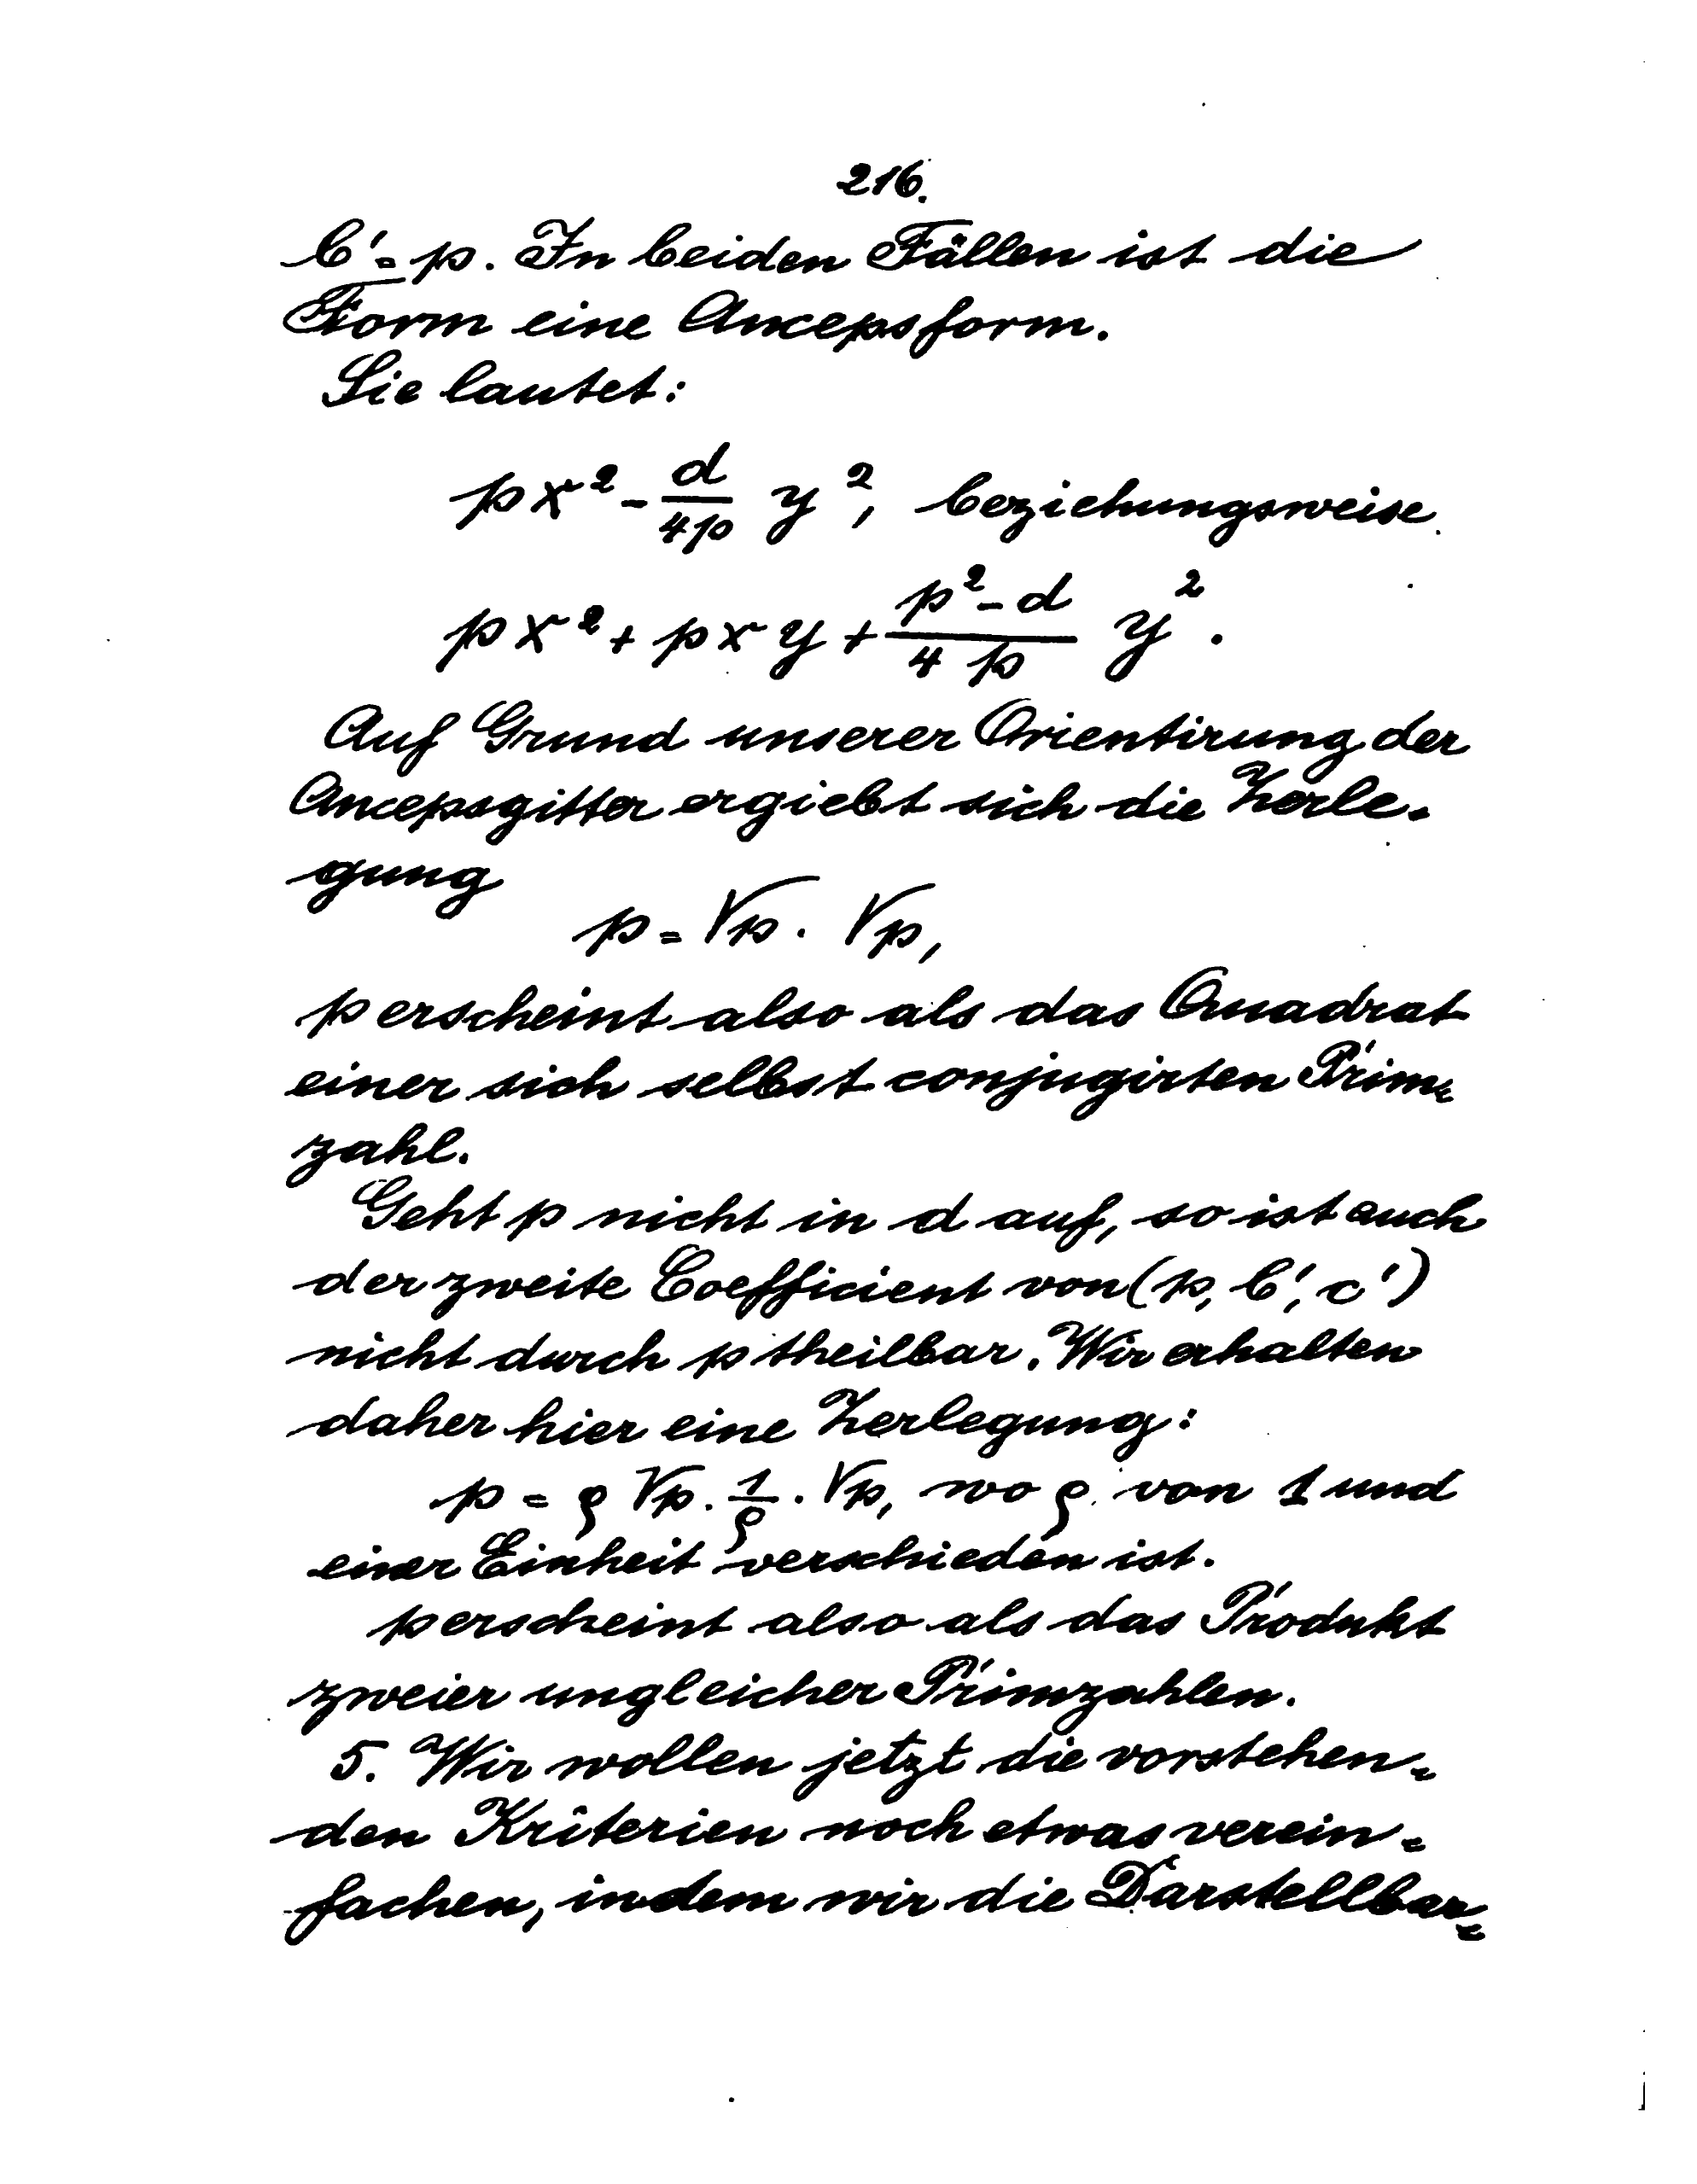 216.
b' = p. In beiden Fällen ist die
Form eine Ancepsform.
Sie lautet:
px² - d/4p y², beziehungsweise
px² + pxy + (p² - d)/4p y².
Auf Grund unserer Orientirung der
Ancepsgitter ergiebt sich die Zerle-
gung
p = √p · √p,
p erscheint also als das Quadrat
einer sich selbst conjugirten Prim-
zahl.
Geht p nicht in d auf, so ist auch
der zweite Coefficient von (p, b', c')
nicht durch p theilbar. Wir erhalten
daher hier eine Zerlegung:
p = ρ√p · 1/ρ · √p, wo ρ von 1 und
einer Einheit verschieden ist.
p erscheint also als das Produkt
zweier ungleicher Primzahlen.
5. Wir wollen jetzt die vorstehen-
den Kriterien noch etwas verein-
fachen, indem wir die Darstellbar-